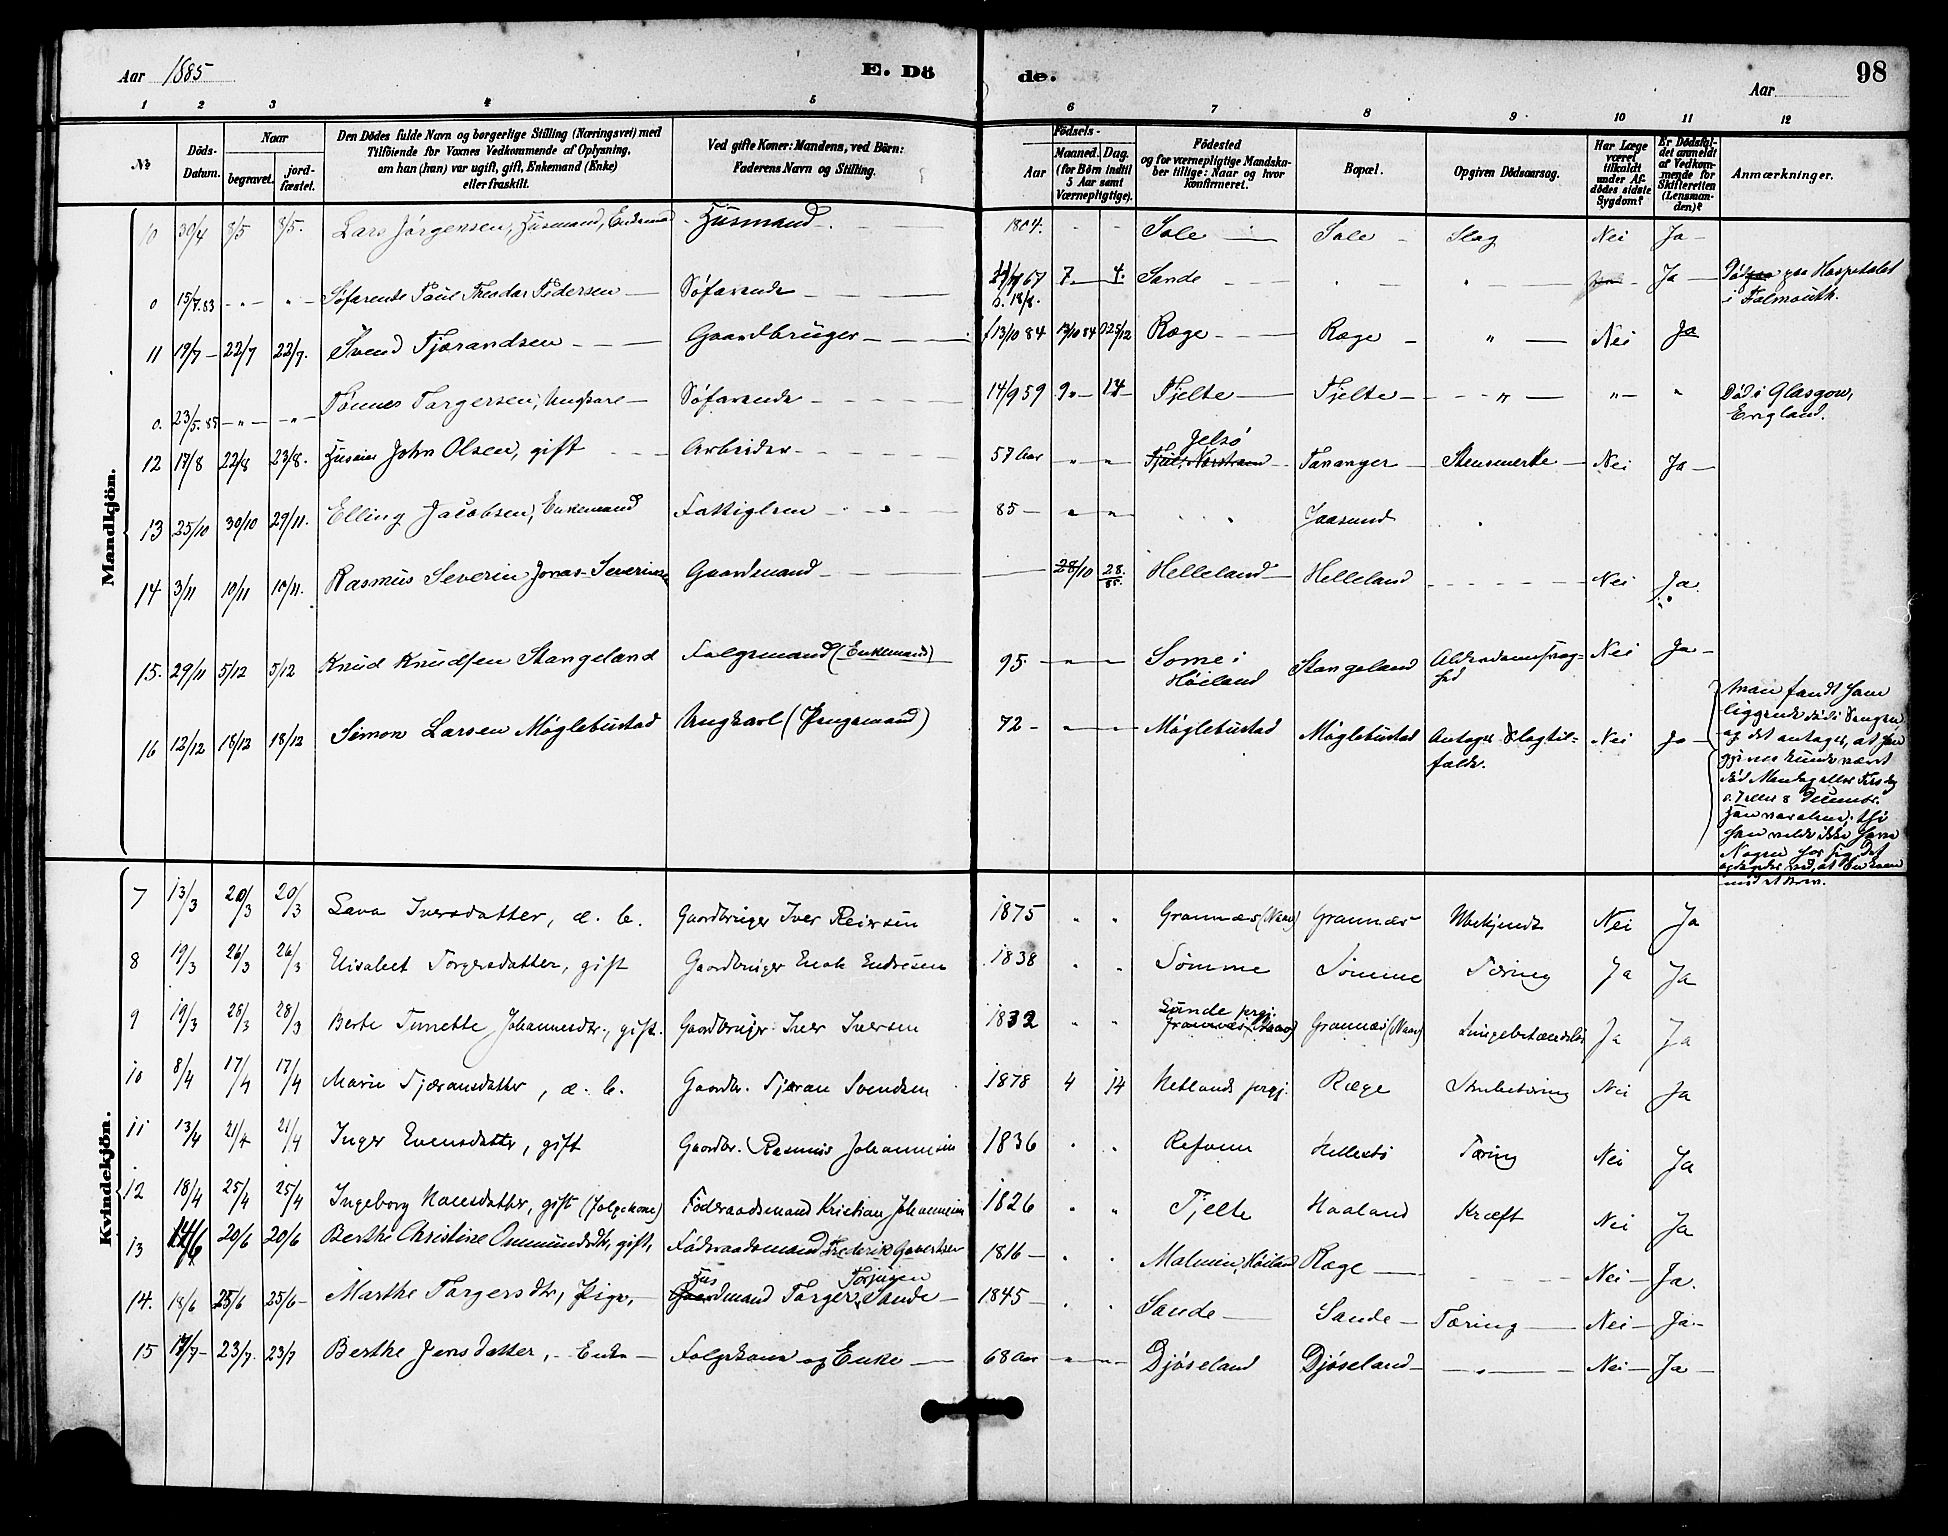 Aar 1885
E. Dö
de.
Aar
98
1 2 3 4 5 6 7 8 9. 10 11 12
No
Döds-Datum.
Naar
begravet.
jord-fæstet.
Den Dödes fulde Navn og borgerlige Stilling (Næringsvei) med
Tilföiende for Voxnes Vedkommende af Oplysning,
om han (hun) var ugift, gift, Enkemand (Enke)
eller fraskilt.
Ved gifte Koner: Mandens, ved Börn:
Faderens Navn og Stilling.
Födsels-
Aar
Maaned. Dag.
(for Börn indtil
5 Aar samt
Værnepligtige).
Födested
og for værnepligtige Mandska-
ber tillige: Naar og hvor
konfirmeret.
Bopæl.
Opgiven Dödsaarsag.
Har Læge
været
tilkaldt
under Af-
dödes sidste
Sygdom?
Er Dödsfal-
det anmeldt
af Vedkom-
mende for
Skifteretten
(Lensman-
den)?
Anmærkninger.
Mandkjön.
10 30/4 8/5 8/5. Lars Jørgensen, Husmand, Enkemand - Husmand - 1804. - - Sole - Sole - Slag Nei Ja -
0 15/7.83 - " - " - Søfarende Paul Theodor Pedersen - Søfarende - 67 7 - 4. Sande " Ja - Død paa Hospitalet
i Falmouth.
11 19/7 - 22/7 22/7. Svend Tjærandsen - Gaardbruger - 13/10 84 13/10 84 D 25/12 Ræge - Ræge - " - Nei Ja
0. 23/5.85 - " - " - Tønnes Torgersen, Ungkarl - Søfarende - 14/9 59 9 - 14 - Tjelte - Tjelte - " - " - " Død i Glasgow,
England.
12 17/8 22/8 23/8. Huseier John Olsen, gift - Arbeider - 57 Aar " " Jelsø Tananger - Stensmerte - Nei Ja -
13 25/10 30/10 29/11. Elling Jacobsen, Enkemand Fattiglem - 85 - " " Jaasund
14 3/11 10/11 10/11. Rasmus Severin Jonas Severinsen Gaardmand - 28/10 28/85. Helleland - Helleland - Nei Ja.
15. 29/11 5/12 5/12 Knud Knudsen Stangeland Folgemand (Enkemand) 95. " Some i
Høiland Stangeland Alderdomssvag-
hed Nei Ja -
16 12/12 18/12 18/12 Simon Larsen Møglebustad Ungkarl (Pengemand) 72 - " Møglebustad Møglebustad Antagel. Slagtil-
fælde. Nei Ja -
Man fandt ham
liggende død i Sengen
og det antages, at han
kunde været
død Mandag eller Tirsdag
d. 7 eller 8 December.
Han var alene, thi
han vilde ikke have
Nogen hos sig, det
opdagedes ved, at En kom
med et Brev.
Kvindekjön.
7 13/3 20/3 20/3 Lava Iversdatter, æ. b. Gaardbruger Iver Reiersen 1875 " " Grannæs (Naae) Grannæs Ubekjendt Nei Ja
8 19/3 26/3 26/3 Elisabet Torgersdatter, gift Gaardbruger Enok Endresen 1838 " " Sømme Sømme Tæring Ja Ja
9 19/3 28/3 28/3 Berte Tonette Johannesdtr., gift. Gaardbruger Iver Iversen 1832 " " Lunde prgj.
Grannæs (Naae) Grannæs (Naae) Lungebetændelse Ja Ja
10 8/4 17/4 17/4 Marie Tjæransdatter, æ. b. Gaardbr. Tjæran Svendsen 1878 4 14 Hetlands prgj. Ræge Strubetæring Nei Ja
11 13/4 21/4 21/4 Inger Evensdatter, gift Gaardbr. Rasmus Johannesen 1836 " " Refsnes Hellestø Tæring Nei Ja
12 18/4 25/4 25/4 Ingeborg Hansdatter, gift (Folgekone) Føderaadsmand Kristian Johannesen 1826 " " Tjelte Haaland Kræft Nei Ja
13 14/6 20/6 20/6 Berthe Christine Osmundsdtr, gift, Føderaadsmand Frederik Govertsen 1816 - " " Malmin, Høiland Ræge - Nei - Ja.
14. 18/6 25/6 25/6 - Marthe Torgersdtr, Pige, - Husmand Torger Torjusen Sande - 1845 - " " Sande - Sande - Tæring - Nei - Ja -
15 17/7 - 23/7. 23/7 Berthe Jensdatter, - Enke - Folgekone og Enke - 68 Aar - " - " - Djøseland Djøseland - " - Nei - Ja -